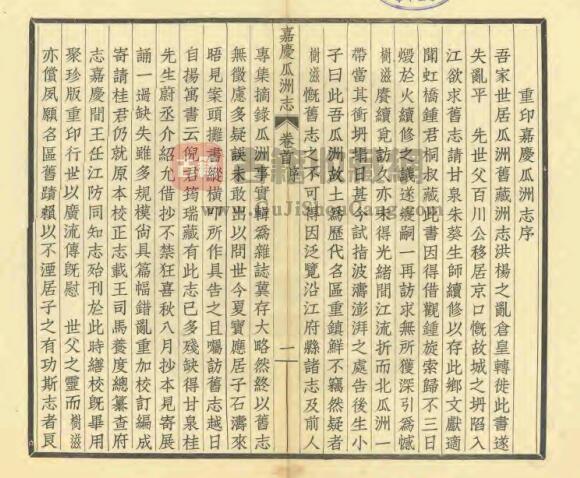 重印嘉慶瓜洲志序
吾家世居瓜洲舊藏洲志洪楊之亂倉皇轉徙此書遂
失亂平 先世父百川公移居京口慨故城之坍陷入
江欲求舊志請甘泉朱葵生師續修以存此鄉文獻適
聞虹橋鍾君桐叔藏此書因得借觀鍾旋索歸不三日
燬於火續修之議遂寢嗣一再訪求無所獲深引為憾
樹滋賡續覓訪久亦未得光緒間江流折而北瓜洲一
帶當其衝坍
指波濤澎湃之處告後生小
子曰此吾瓜洲故土
為歷代名區重鎮鮮不竊然疑者
樹滋慨舊志之不可
得因泛覽沿江府縣諸志及前人
嘉慶瓜洲志 卷首 序 一
專集摘錄瓜洲事實輯為雜誌冀存大略然終以舊志
無徵慮多疑誤未敢出以問世今夏寶應居子石濤來
晤見案頭攤書縱橫叩所作具告之且囑訪舊志越日
自揚寓書云倪君筠瑞藏有此志已多殘缺得甘泉桂
先生蔚丞介紹允借抄不禁狂喜秋八月抄本見寄展
誦一過缺失雖多規模尚具篇幅錯亂重加校訂編成
寄請桂君仍就原本校正志載王司馬養度總纂查府
志嘉慶間王任江防同知志殆刊於此時繕校既畢用
聚珍版重印行世以廣流傳既慰 世父之靈而樹滋
亦償夙願名區舊蹟賴以不湮居子之有功斯志者良